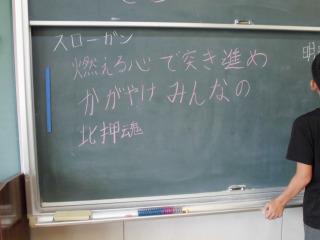 スローガン
燃える心で突き進め
かがやけ みんなの
北押魂
明